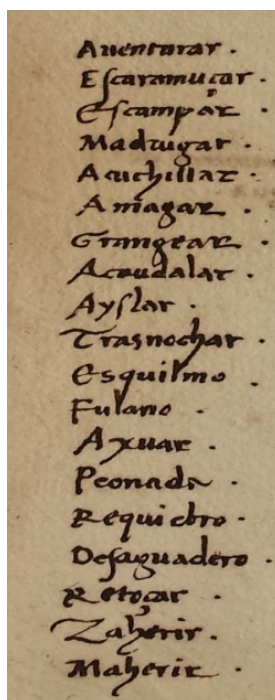 Auenturar .
Escaramuçar .
Escampar .
Madrugar .
Acuchillar .
Amagar .
Grangear .
Acaudalar .
Ayslar .
Trasnochar .
Esquilmo .
Fulano .
Axuar .
Peonada .
Requiebro .
Desaguadero .
Retoçar .
Zaherir .
Maherir .